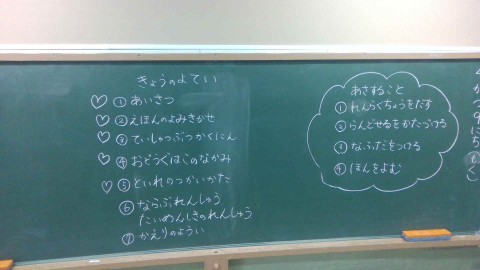 きょうのよてい
♡ ① あいさつ
♡ ② えほんのよみきかせ
♡ ③ ていしゅつぶつかくにん
♡ ④ おどうぐばこのなかみ
♡ ⑤ といれのつかいかた
⑥ ならぶれんしゅう
たいめんしきのれんしゅう
⑦ かえりのようい
あさすること
① れんらくちょうをだす
② らんどせるをかたづける
③ なふだをつける
④ ほんをよむ